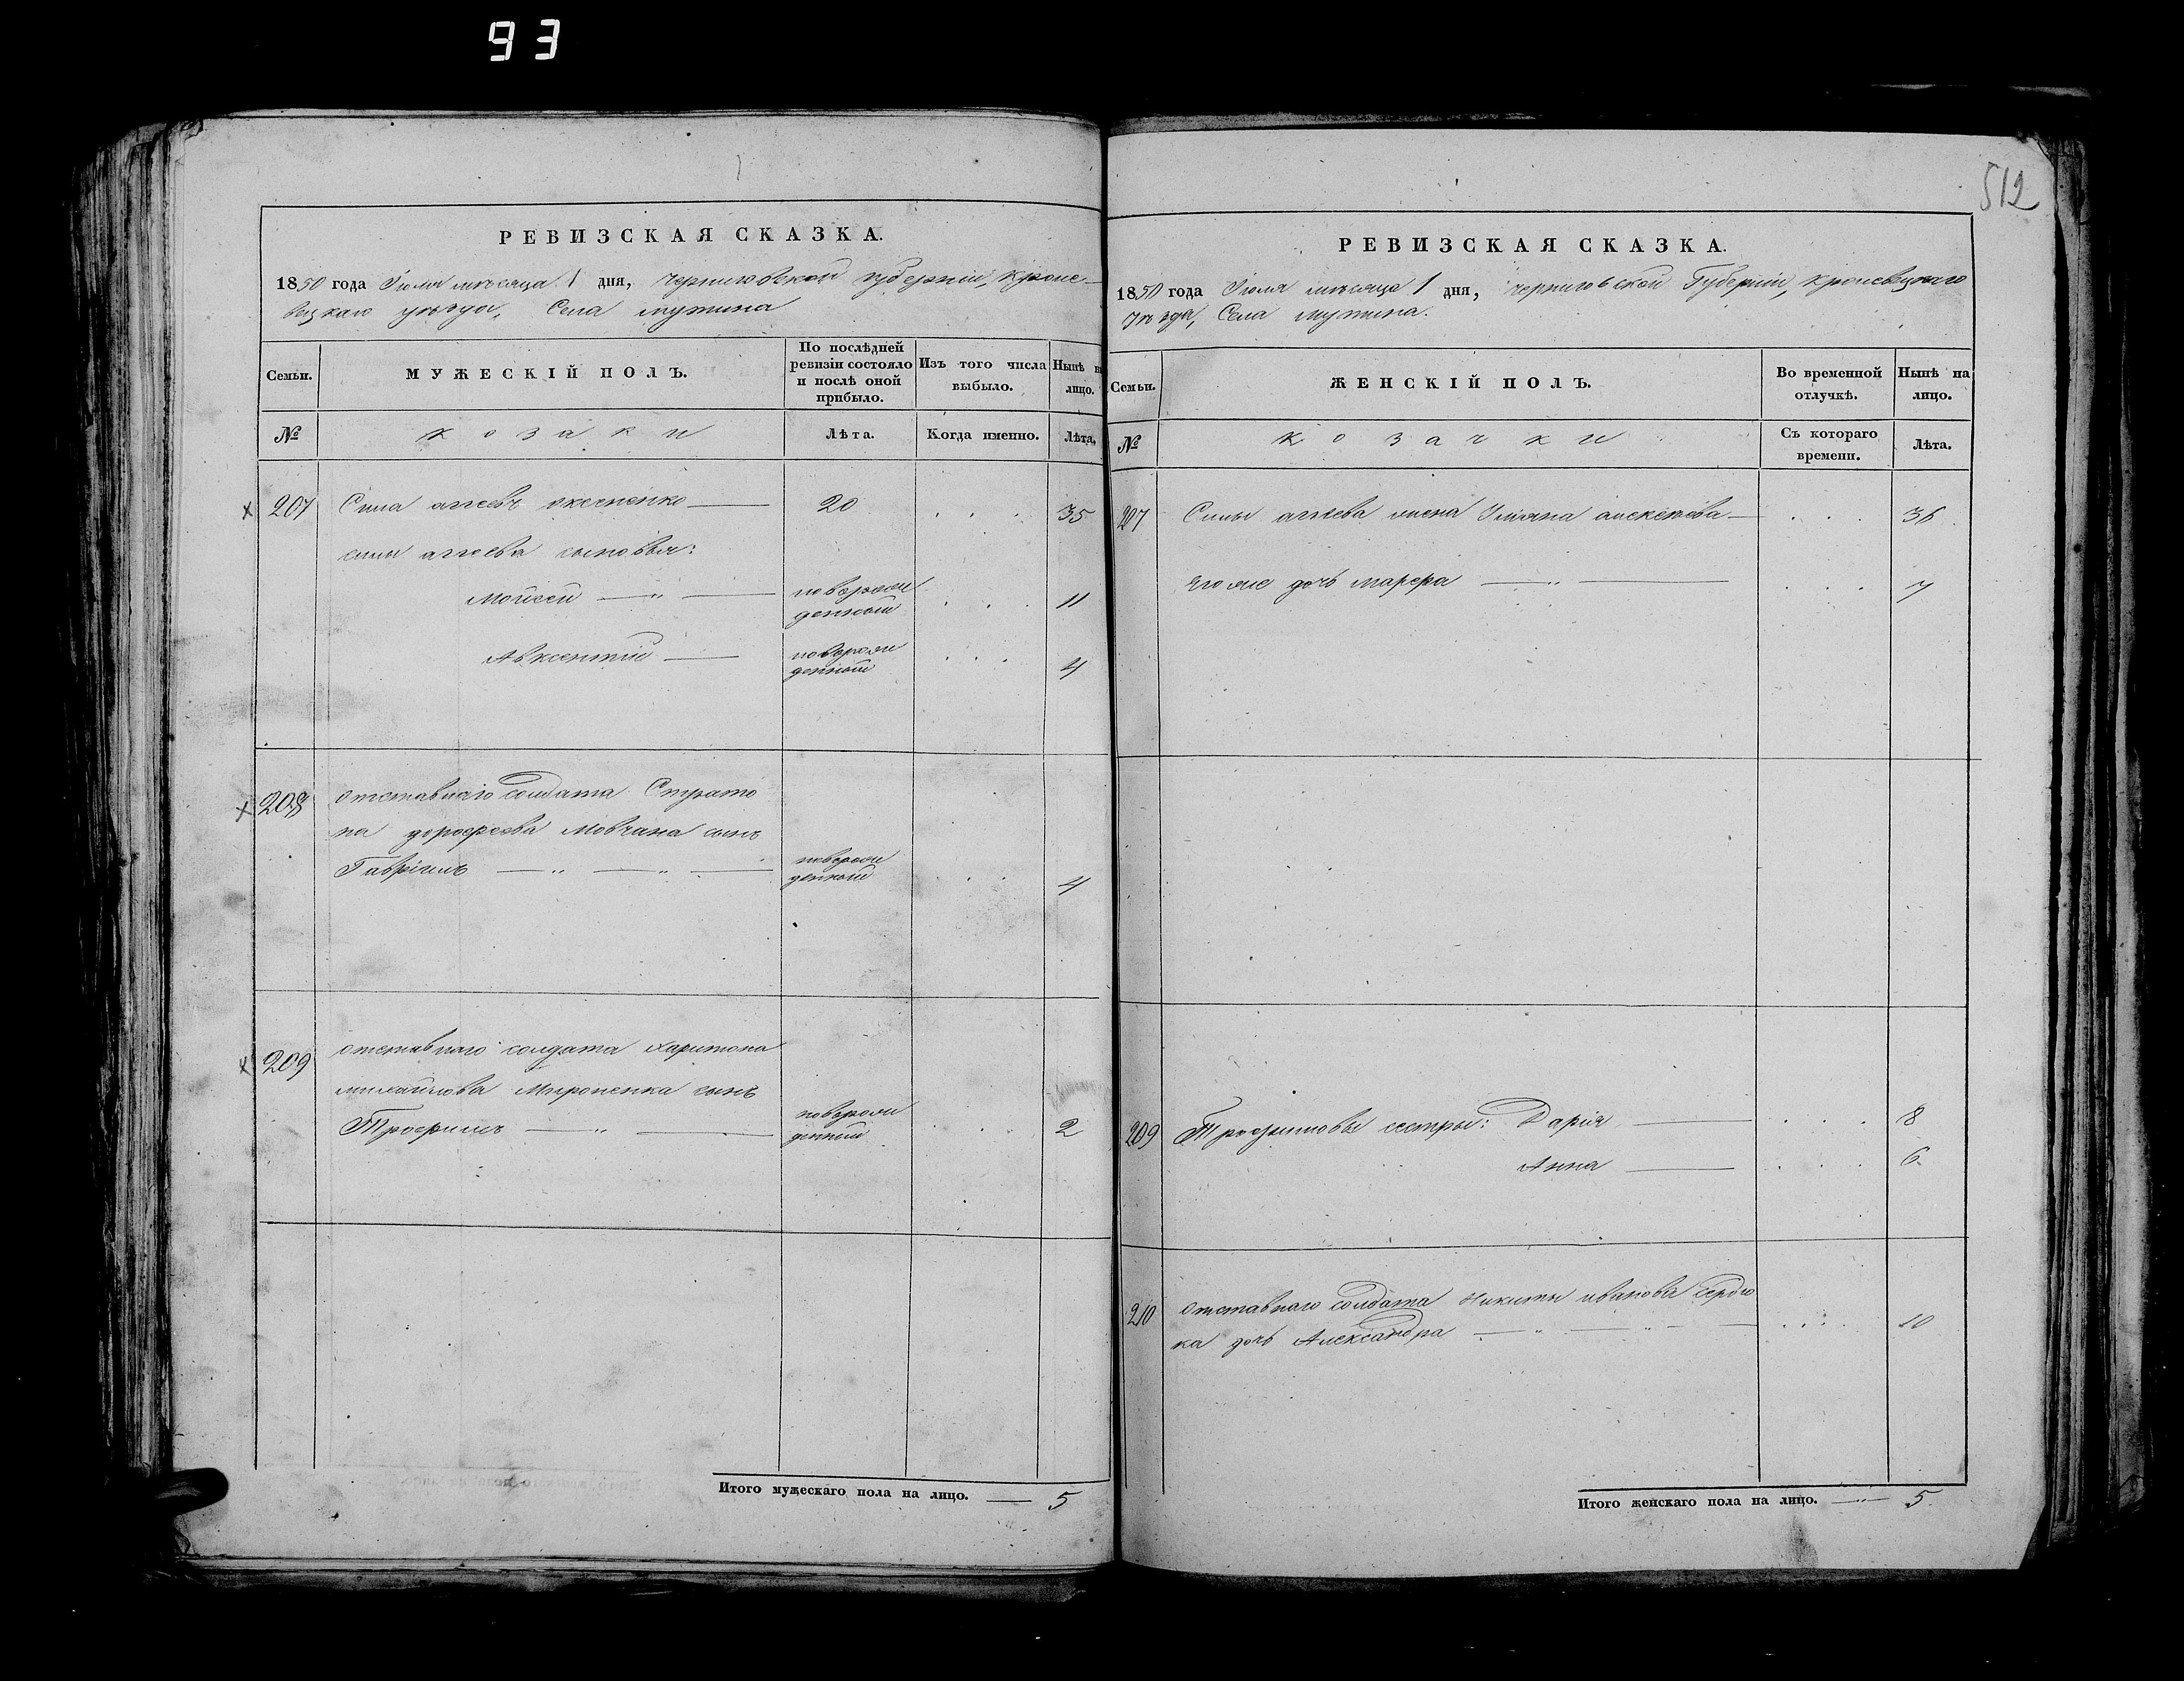 93
512
РЕВИЗСКАЯ СКАЗКА.
1850 года Іюля мѣсяца 1 дня, Черниговской губерніи, Кроле-
вецкаго уѣзда, Села Мутина
Семьи.
МУЖЕСКІЙ ПОЛЪ.
По послѣдней ревизіи состояло и послѣ оной прибыло.
Изъ того числа выбыло.
Нынѣ на лицо.
№
козаки
Лѣта.
Когда именно.
Лѣта.
207 Сила агѣевъ 20 35
силы агѣева сыновья:
Мойсей новорож
денный 11
Авксентій новорож
денный 4
208 отставнаго солдата Страто
на дорофѣева Мовчана сынъ
Гавріилъ новорож
денный 4
209 отставнаго солдата Харитона
михайлова Мироненка сынъ
Трофимъ новорож
денный 2
Итого мужескаго пола на лицо. 5
РЕВИЗСКАЯ СКАЗКА.
1850 года Іюля мѣсяца 1 дня, Черниговской Губерніи, Кролевецкаго
Уѣзда, Села Мутина.
Семьи.
ЖЕНСКІЙ ПОЛЪ.
Во временной отлучкѣ.
Нынѣ на лицо.
№
козачки
Съ котораго времени.
Лѣта.
207 Силы агѣева жена Ульяна алексѣева 36
его же дочь марфа 7
209 Трофимовы сестры: Дарія 8
Анна 6
210 отставнаго солдата Никиты иванова Сердю
ка дочь Александра 10
Итого женскаго пола на лицо. 5